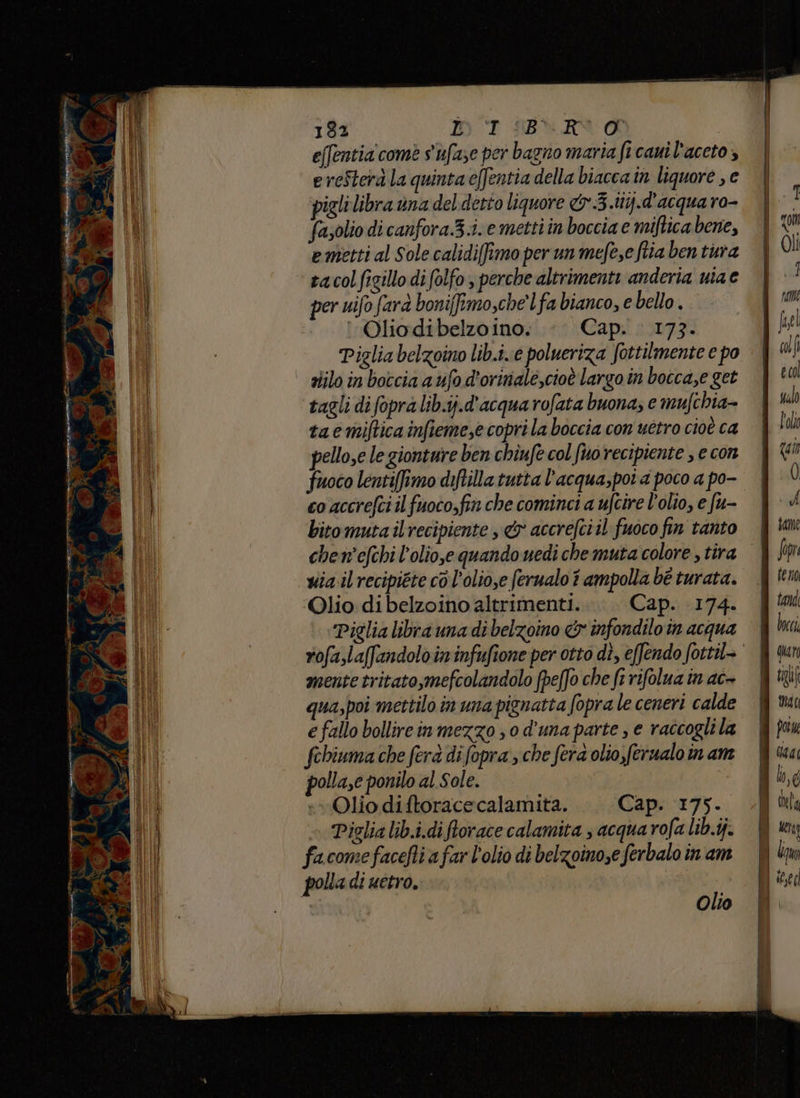 182 L I B R O
eſſentia come s'uſa,e per bagno maria ſi caui l'aceto,
e reſterà la quinta eſſentia della biacca in liquore, e
pigli libra una del detto liquore & ʒ.iiij.d'acqua ro-
ſa,olio di canfora.ʒ.i. e metti in boccia e miſtica bene,
e metti al Sole calidiſſimo per un meſe,e ſtia ben tura
ta col ſigillo di ſolfo, perche altrimenti anderia uia e
per uiſo farà boniſſimo,che'l fa bianco, e bello.
Olio di belzoino. Cap. 173.
Piglia belzoino lib.i. e polueriza ſottilmente e po
nilo in boccia a uſo d'orinale,cioè largo in bocca,e get
tagli di ſopra lib.ij.d'acqua roſata buona, e muſchia-
ta e miſtica inſieme,e copri la boccia con uetro cioè ca
pello,e le gionture ben chiuſe col ſuo recipiente, e con
fuoco lentiſſimo diſtilla tutta l'acqua,poi a poco a po-
co accreſci il fuoco,fin che cominci a uſcire l'olio, e ſu-
bito muta il recipiente, & accreſci il fuoco fin tanto
che n'eſchi l'olio,e quando uedi che muta colore, tira
uia il recipiẽte cõ l'olio,e ſerualo ĩ ampolla bẽ turata.
Olio di belzoino altrimenti. Cap. 174.
Piglia libra una di belzoino & infondilo in acqua
roſa,laſſandolo in infuſione per otto dì, eſſendo ſottil-
mente tritato,meſcolandolo ſpeſſo che ſi riſolua in ac-
qua,poi mettilo in una pignatta ſopra le ceneri calde
e fallo bollire in mezzo, o d'una parte, e raccogli la
ſchiuma che ſerà di ſopra, che ſerà olio,ſerualo in am
polla,e ponilo al Sole.
Olio di ſtorace calamita. Cap. 175.
Piglia lib.i.di ſtorace calamita, acqua roſa lib.ij.
fa come faceſti a far l'olio di belzoino,e ſerbalo in am
polla di uetro.
Olio